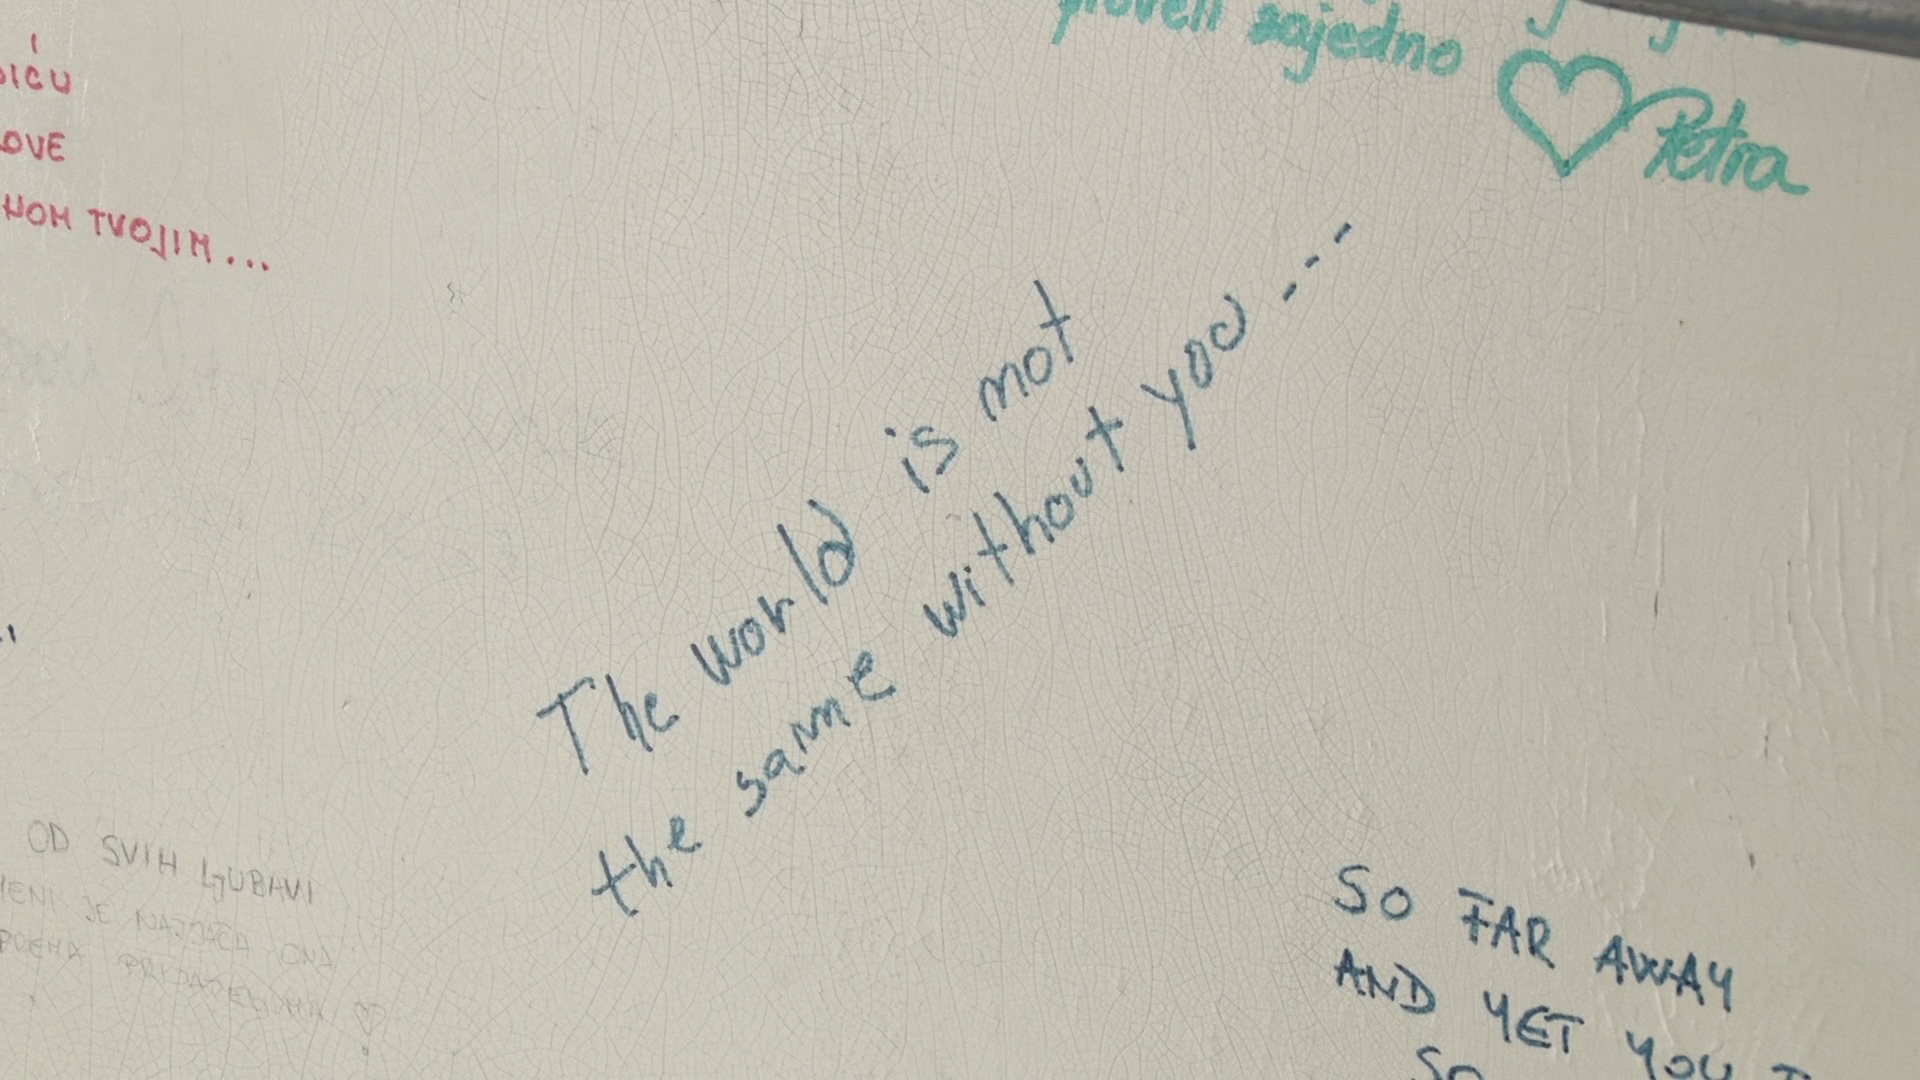 sajedno
Petra
LOVE
TVOJIM...
The world is not
the same without you ---
OD SVIH LJUBAVI
MENI JE NAJJAČA ONA
PREMA PRIJATELJIMA ♡
SO FAR AWAY
AND YET YOU
SO